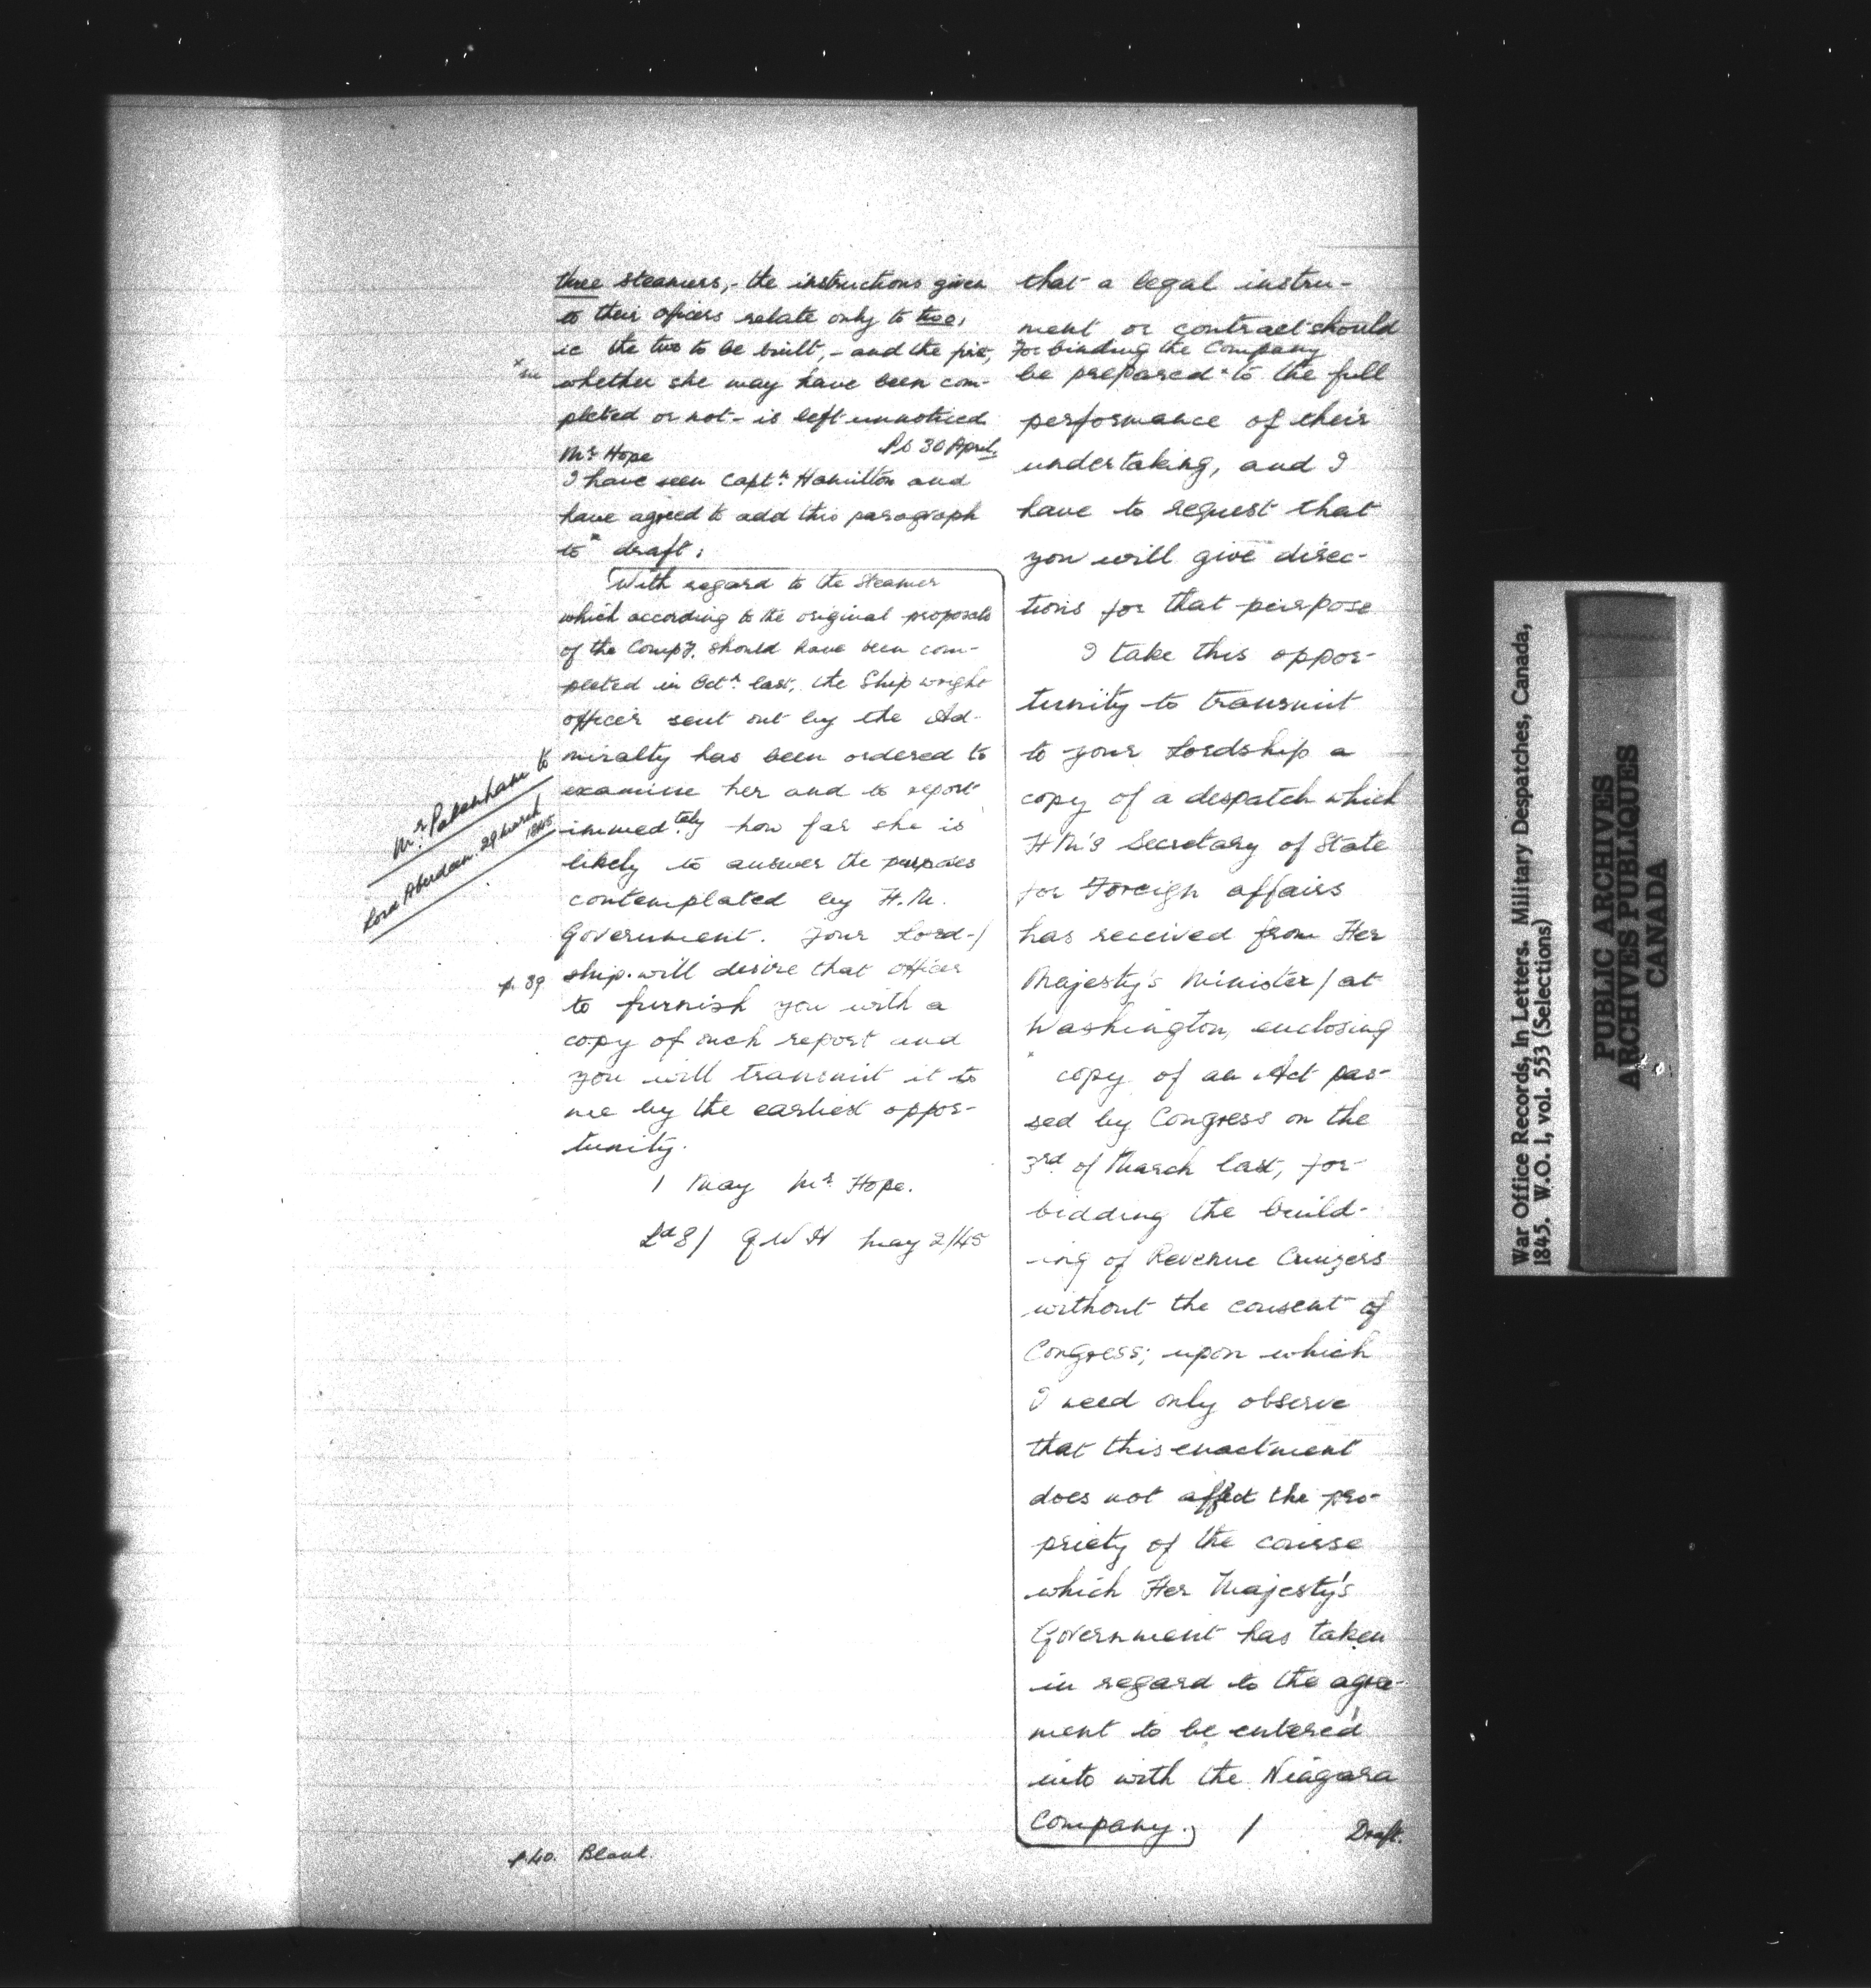 three steamers,- the instructions given
to their officers relate only to two,
ie the two to be built,- and the
whether she may have been com-
pleted or not- is left unnoticed
30 April
Mr Hope
I have seen Captn. Hamilton and
have agreed to add this paragraph
to x draft:
With regard to the Steamer
which according to the original proposals
of the Compy. should have been com-
pleted in Octr. last, the Shipwright
officer sent out by the Ad-
miralty has been ordered to
examine her and to report
immedtely how far she is
likely to answer the purposes
contemplated by H.M.
Government. Your Lord-/
p. 39 ship will desire that officer
to furnish you with a
copy of such report and
you will transmit it to
me by the earliest oppor-
tunity.
1 May Mr Hope.
Ld S/ GWH May 2/45
Mr. Pakenham to
Lord Aberdeen. 29 March
1845
p.40. Blank.
that a legal instru-
ment or contract should
for binding the Company
be prepared x to the full
performance of their
undertaking, and I
have to request that
you will give direc-
tions for that purpose
I take this oppor-
tunity to transmit
to your Lordship a
copy of a despatch which
HM's Secretary of State
for Foreign affairs
has received from Her
Majesty's Minister/ at
Washington, enclosing
x copy of an Act pas-
sed by Congress on the
3rd. of March last, for-
bidding the build-
-ing of Revenue Cruizers
without the consent of
Congress; upon which
I need only observe
that this enactment
does not affect the pro-
priety of the course
which Her Majesty's
Government has taken
in regard to the agree-
ment to be entered
into with the Niagara
Company. / Draft.
War Office Records, In Letters. Military Despatches, Canada,
1845. W.O. 1, vol. 553 (Selections)
PUBLIC ARCHIVES
ARCHIVES PUBLIQUES
CANADA